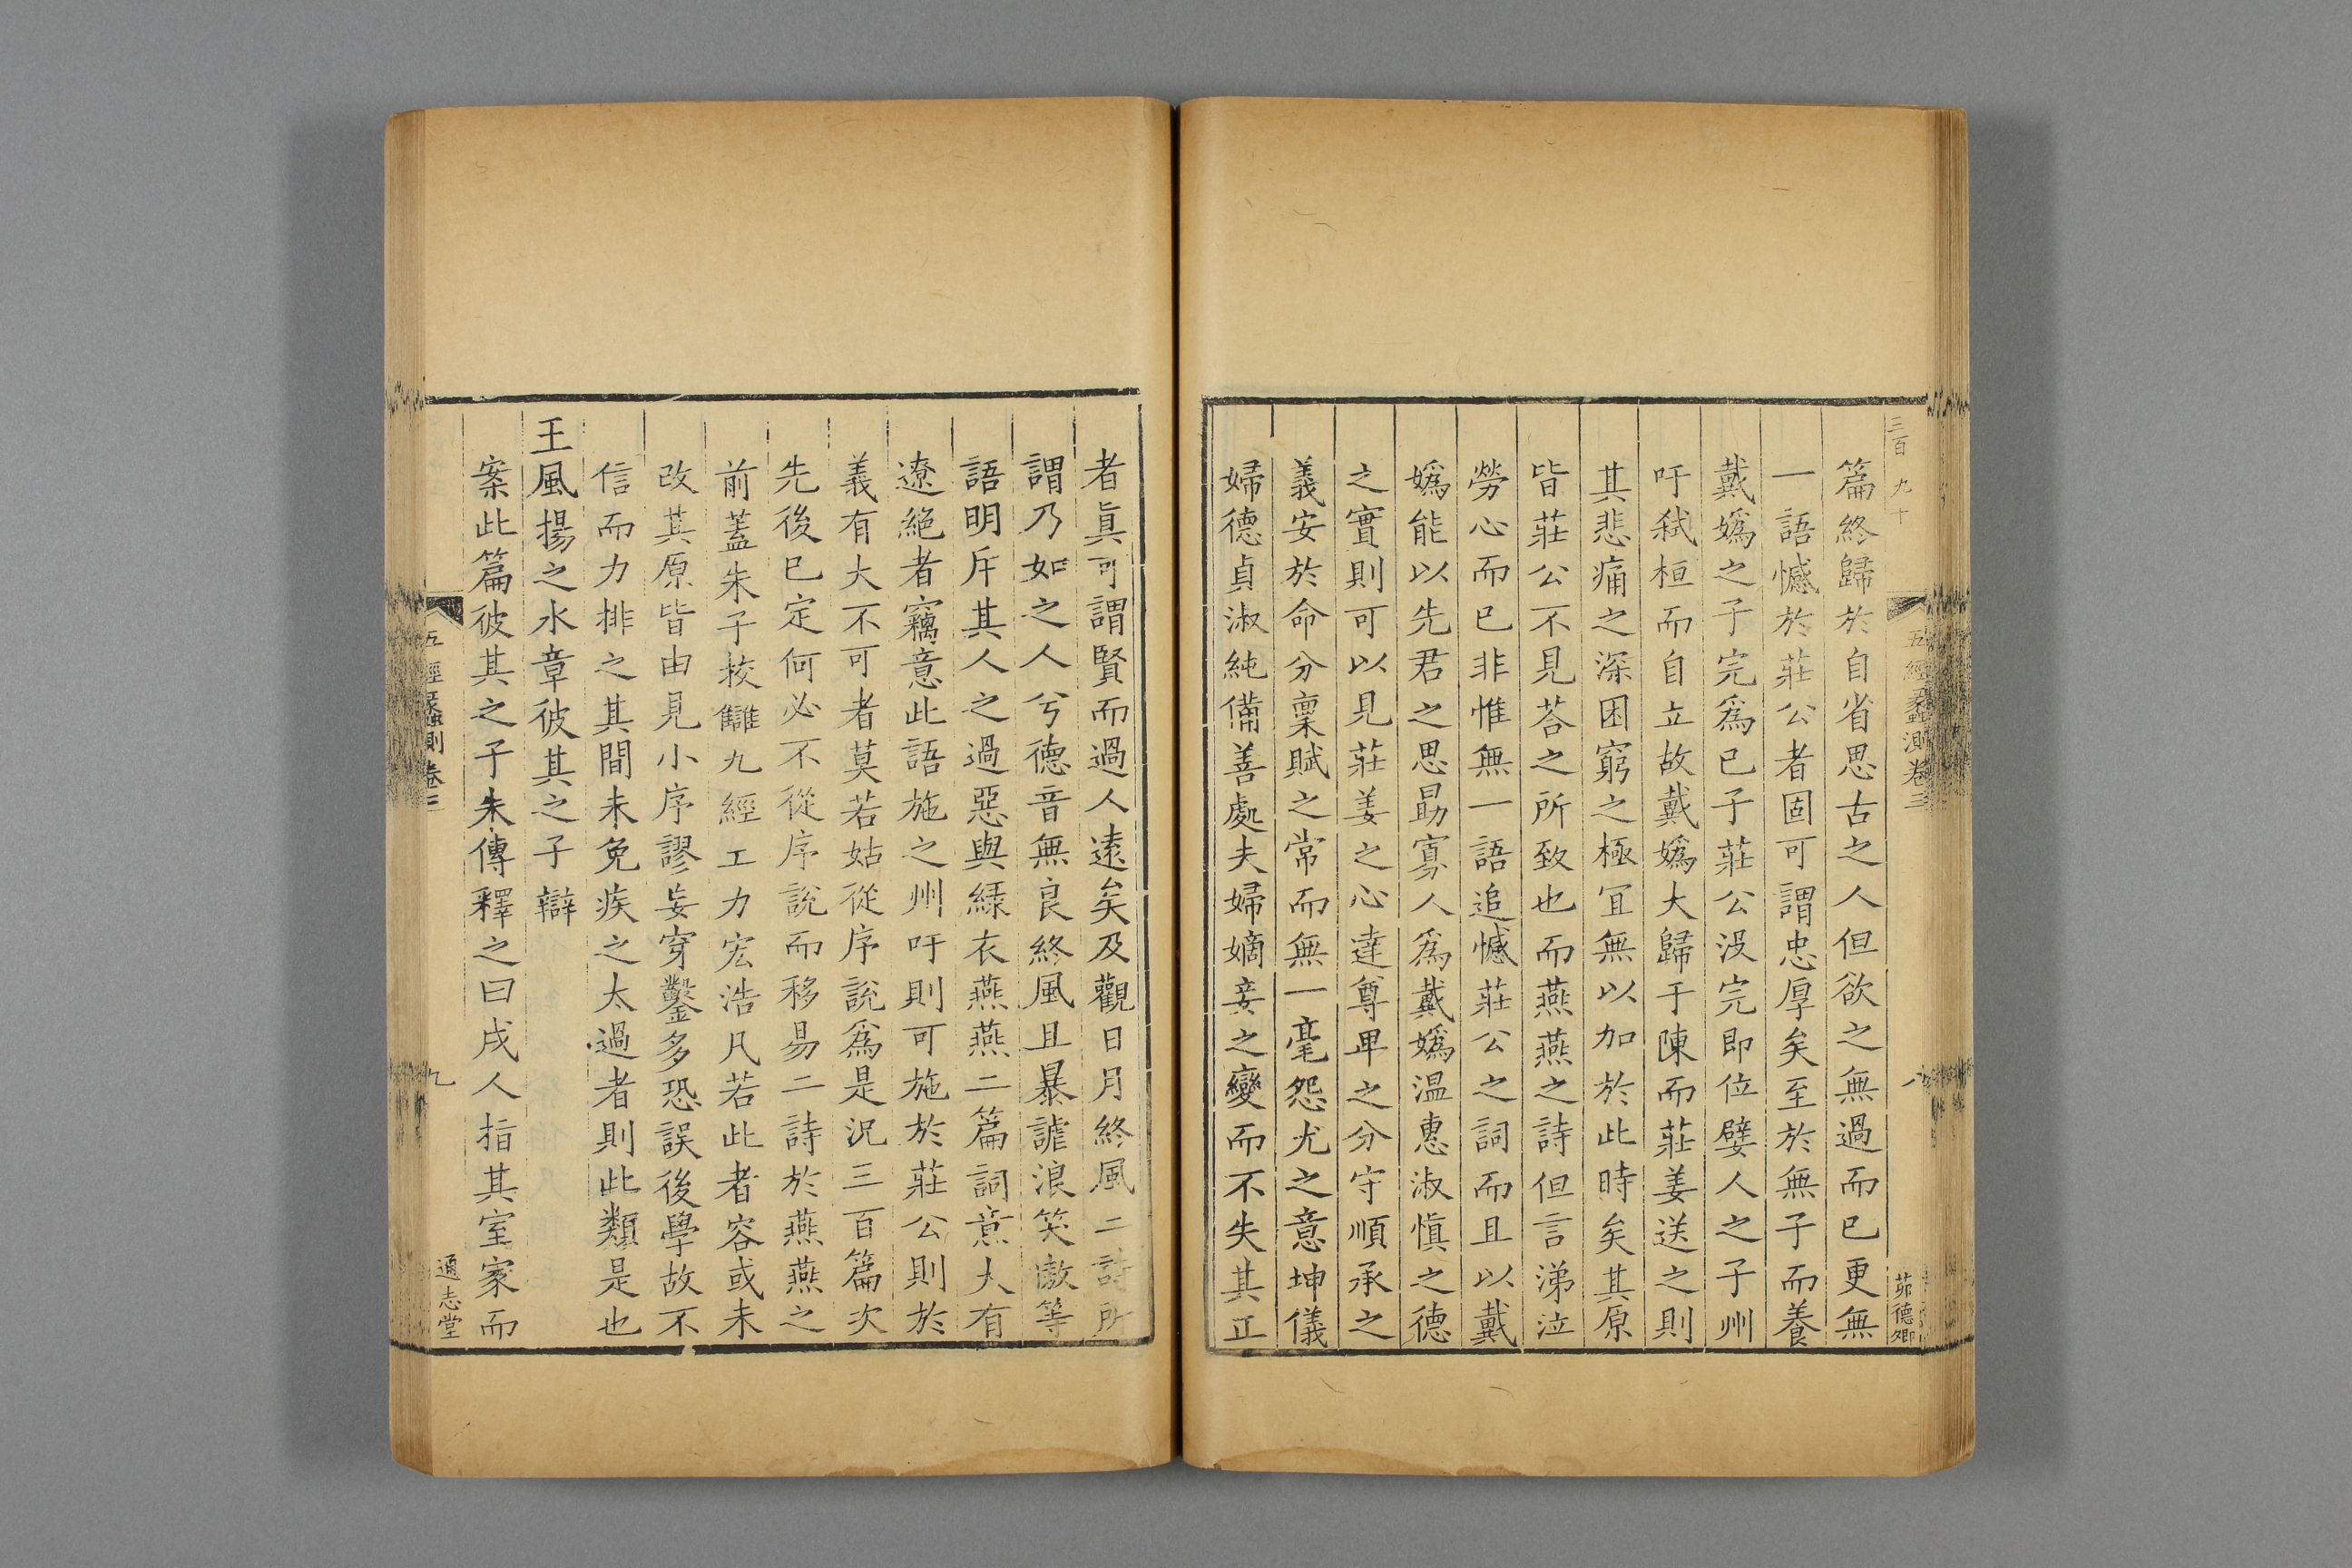 三百九十
五經蠡測卷三
八
茆德卿
篇終歸於自省思古之人但欲之無過而已更無
一語憾於莊公者固可謂忠厚矣至於無子而養
戴嬀之子完爲已子莊公没完即位嬖人之子州
吁弑桓而自立故戴嬀大歸于陳而莊姜送之則
其悲痛之深困窮之極冝無以加於此時矣其原
皆莊公不見荅之所致也而燕燕之詩但言涕泣
勞心而已非惟無一語追憾莊公之詞而且以戴
嬀能以先君之思勗寡人爲戴嬀温惠淑愼之德
之實則可以見莊姜之心達尊卑之分守順承之
義安於命分稟賦之常而無一毫怨尤之意坤儀
婦德貞淑純備善處夫婦嫡妾之變而不失其正
者眞可謂賢而過人遠矣及觀日月終風二詩所
謂乃如之人兮德音無良終風且暴謔浪笑敖等
語明斥其人之過惡與緑衣燕燕二篇詞意大有
遼絕者竊意此語施之州吁則可施於莊公則於
義有大不可者莫若姑從序說爲是况三百篇次
先後已定何必不從序說而移易二詩於燕燕之
前蓋朱子挍讎九經工力宏浩凡若此者容或未
改其原皆由見小序謬妄穿鑿多恐誤後學故不
信而力排之其間未免疾之太過者則此類是也
王風揚之水章彼其之子辯
案此篇彼其之子朱傳釋之曰戍人指其室家而
五經蠡測卷三
九
通志堂